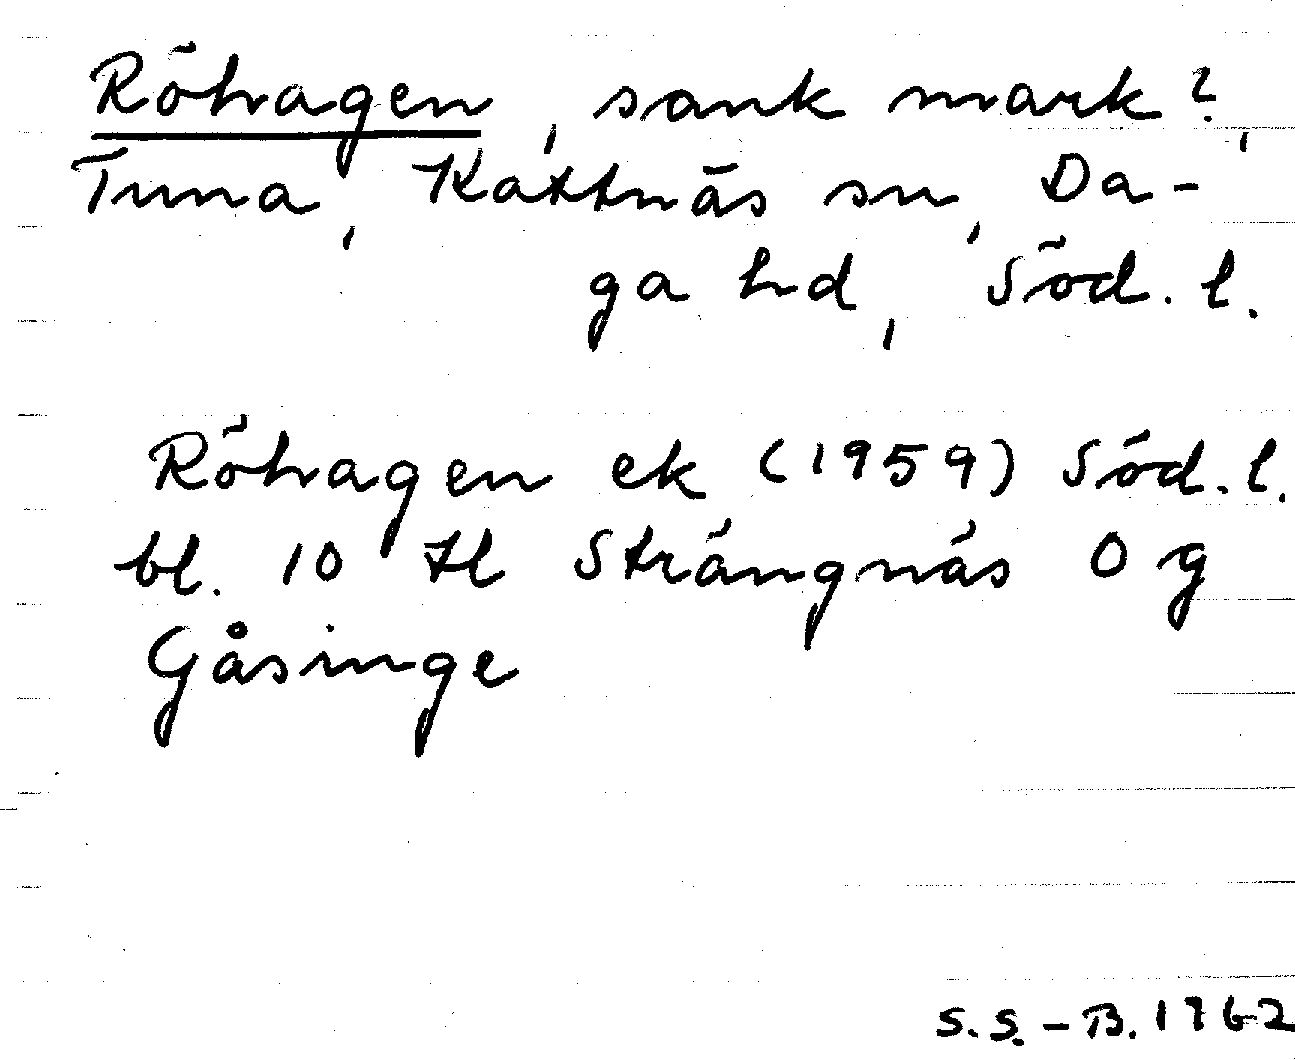 Röhagen, sank mark?,
Tuna, Kattnäs sn, Da-
ga hd, Söd. l.
Röhagen ek (1959) Söd. l.
bl. 10 tl Strängnäs O g
Gåsinge
S.S.-B. 1962